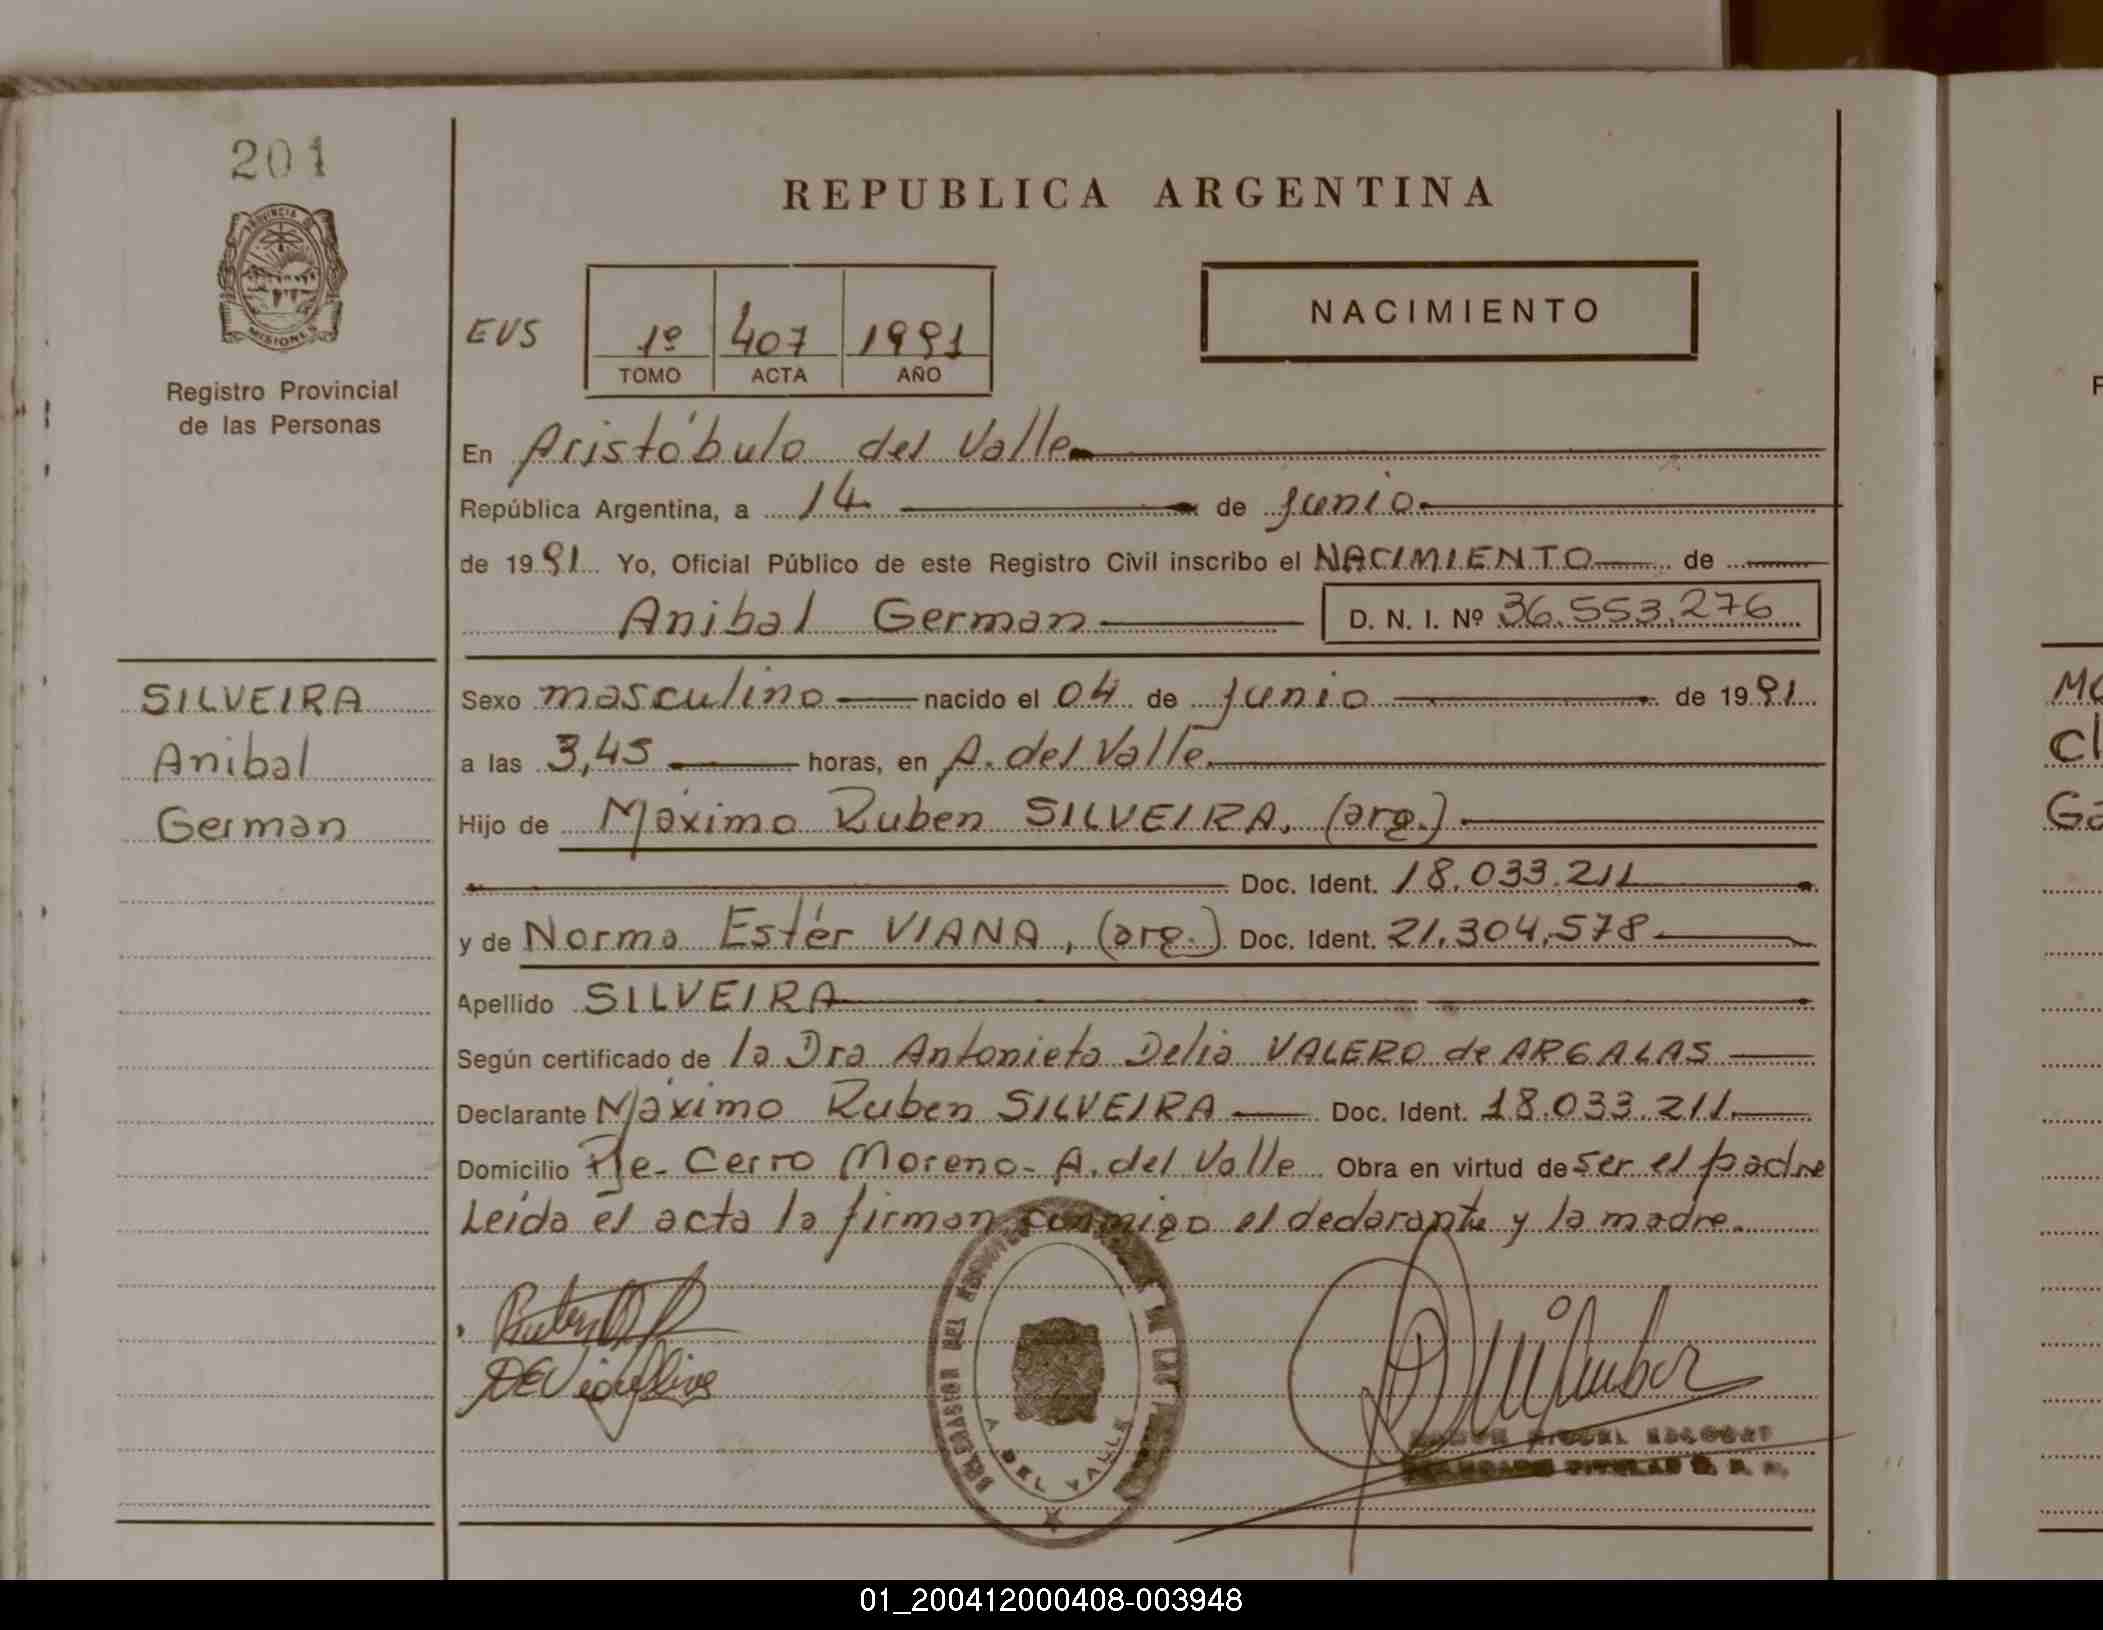 201
PROVINCIA DE
MISIONES
Registro Provincial
de las Personas
SILVEIRA
Anibal
German
REPUBLICA ARGENTINA
EVS
1º 407 1991
TOMO ACTA AÑO
NACIMIENTO
En Aristóbulo del Valle
República Argentina, a 14 de junio
de 1991 Yo, Oficial Público de este Registro Civil inscribo el NACIMIENTO de
Anibal German D. N. I. Nº 36.553.276
Sexo masculino nacido el 04 de junio de 1991
a las 3,45 horas, en A. del Valle
Hijo de Máximo Ruben SILVEIRA, (arg.)
Doc. Ident. 18.033.211
y de Norma Estér VIANA, (arg.) Doc. Ident. 21.304.578
Apellido SILVEIRA
Según certificado de la Dra Antonieta Delia VALERO de ARGALAS
Declarante Máximo Ruben SILVEIRA Doc. Ident. 18.033.211
Domicilio Pje- Cerro Moreno- A. del Valle Obra en virtud de ser el padre
Leída el acta la firman conmigo el declarante y la madre.
A DEL VALLE
Mo
Cl
Ga
01_200412000408-003948